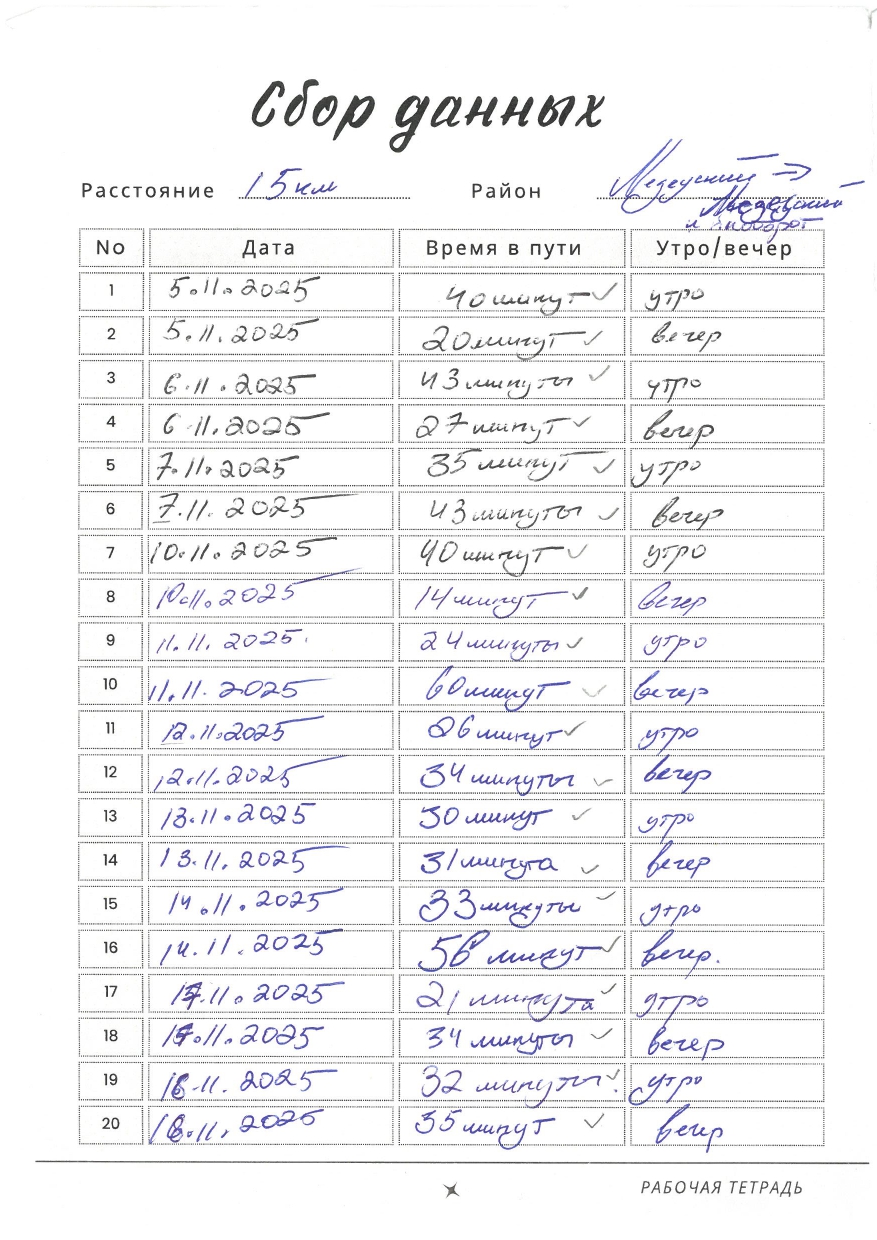 Сбор данных
Расстояние 15 км Район Медеуский →
Медеуский
и наоборот
No Дата Время в пути Утро/вечер
1 5.11.2025 40 минут ✓ утро
2 5.11.2025 20 минут ✓ вечер
3 6.11.2025 43 минуты ✓ утро
4 6.11.2025 27 минут ✓ вечер
5 7.11.2025 35 минут ✓ утро
6 7.11.2025 43 минуты ✓ вечер
7 10.11.2025 40 минут ✓ утро
8 10.11.2025 14 минут ✓ вечер
9 11.11.2025. 24 минуты ✓ утро
10 11.11.2025 60 минут ✓ вечер
11 12.11.2025 26 минут ✓ утро
12 12.11.2025 34 минуты ✓ вечер
13 13.11.2025 30 минут ✓ утро
14 13.11.2025 31 минута ✓ вечер
15 14.11.2025 33 минуты ✓ утро
16 14.11.2025 56 минут ✓ вечер.
17 17.11.2025 21 минута ✓ утро
18 17.11.2025 34 минуты ✓ вечер
19 18.11.2025 32 минуты ✓. утро
20 18.11.2025 35 минут ✓ вечер
РАБОЧАЯ ТЕТРАДЬ